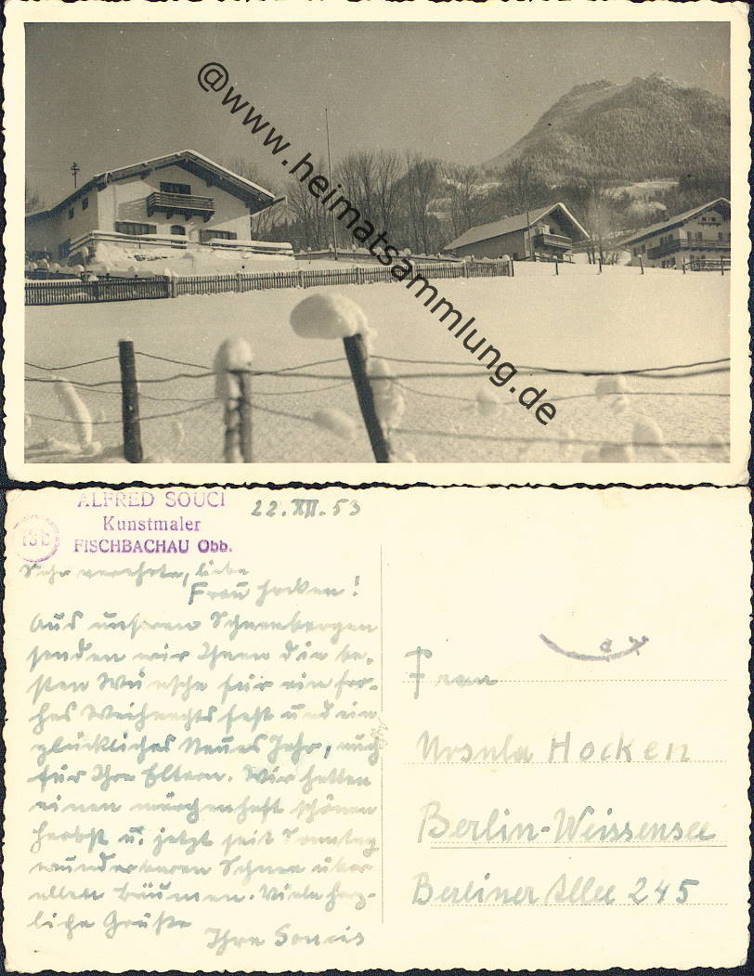 @www.heimatsammlung.de
ALFRED SOUCI
Kunstmaler
FISCHBACHAU Obb.
22. XII. 53
Sehr verehrte, liebe
Frau Hocken!
Aus unseren Schneebergen
senden wir Ihnen die be-
sten Wünsche für ein fro-
hes Weihnachtsfest und ein
glückliches Neues Jahr, auch
für Ihre Eltern. Wir hatten
einen märchenhaft schönen
Herbst u. jetzt seit Sonntag
wunderbaren Schnee über
allen Bäumen. Viele herz-
liche Grüße
Ihre Soucis
Frau
Ursula Hocken
Berlin-Weissensee
Berliner Allee 245